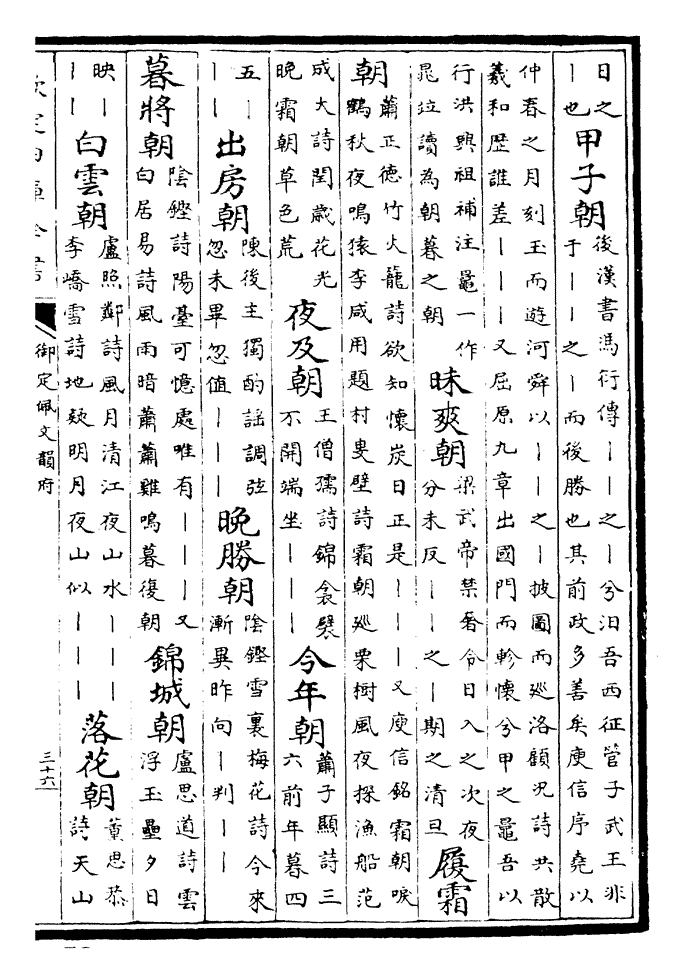 日之｜也甲子朝後漢書馮衍傳｜｜之｜兮汨吾西征管子武王非于｜｜之｜而後勝也其前政多善矣庾信序堯以
仲春之月刻玉而遊河舜以｜｜之｜披圖而廵洛顧况詩共散羲和歴誰差｜｜｜又屈原九章出國門而軫懷兮甲之鼂吾以
行洪興祖補注鼂一作晁竝讀為朝暮之朝昧爽朝梁武帝禁奢令日入之次夜分未反｜｜之｜期之清旦履霜
朝蕭正德竹火籠詩欲知懷炭日正是｜｜｜又庾信銘霜朝唳鶴秋夜鳴猿李咸用題村叟壁詩霜朝廵栗樹風夜探漁船范
成大詩閏歲花光晚霜朝草色荒夜及朝王僧孺詩錦衾襞不開端坐｜｜｜今年朝蕭子顯詩三六前年暮四
五｜｜｜出房朝陳後主獨酌謡調弦忽未畢忽值｜｜｜晚勝朝陰鏗雪裏梅花詩今來漸異昨向｜判｜｜
暮將朝陰鏗詩陽臺可憶處唯有｜｜｜又白居易詩風雨暗蕭蕭雞鳴暮復朝錦城朝盧思道詩雲浮玉壘夕日
映｜｜｜白雲朝盧照鄰詩風月清江夜山水｜｜｜李嶠雪詩地疑明月夜山似｜｜｜落花朝董思恭詩天山
欽定四庫全書
御定佩文韻府
三十六